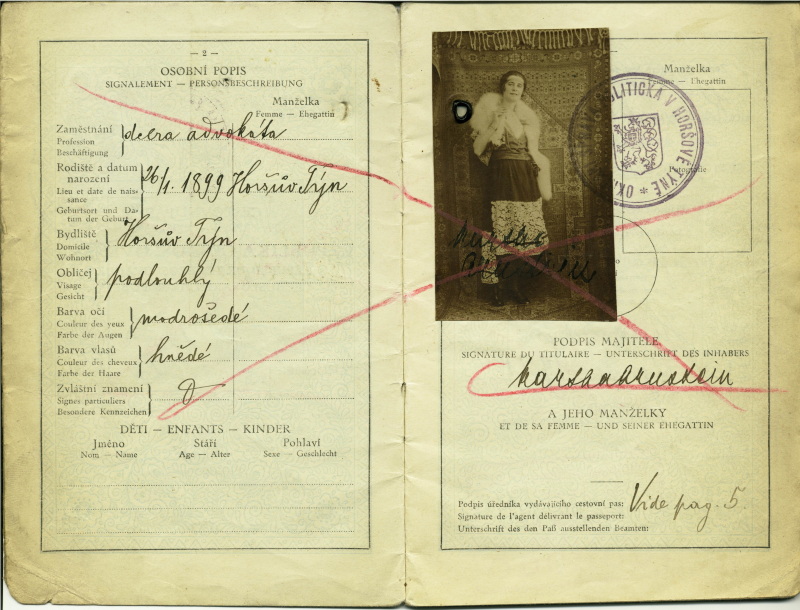 — 2 —
OSOBNÍ POPIS
SIGNALEMENT — PERSONSBESCHREIBUNG
Manželka
Femme — Ehegattin
Zaměstnání
Profession
Beschäftigung
dcera advokáta
Rodiště a datum
narození
Lieu et date de nais-
sance
Geburtsort und Da-
tum der Geburt
26/1. 1899 Horšův Týn
Bydliště
Domicile
Wohnort
Horšův Týn
Obličej
Visage
Gesicht
podlouhlý
Barva očí
Couleur des yeux
Farbe der Augen
modrošedé
Barva vlasů
Couleur des cheveux
Farbe der Haare
hnědé
Zvláštní znamení
Signes particuliers
Besondere Kennzeichen
DĚTI — ENFANTS — KINDER
Jméno Stáří Pohlaví
Nom — Name Age — Alter Sexe — Geschlecht
Manželka
Femme — Ehegattin
LITICKÁ V HORŠOVĚ TÝNĚ * OK
PODPIS MAJITELE
SIGNATURE DU TITULAIRE — UNTERSCHRIFT DES INHABERS
A JEHO MANŽELKY
ET DE SA FEMME — UND SEINER EHEGATTIN
Podpis úředníka vydávajícího cestovní pas:
Signature de l'agent délivrant le passeport:
Unterschrift des den Paß ausstellenden Beamten:
Vide pag. 5.